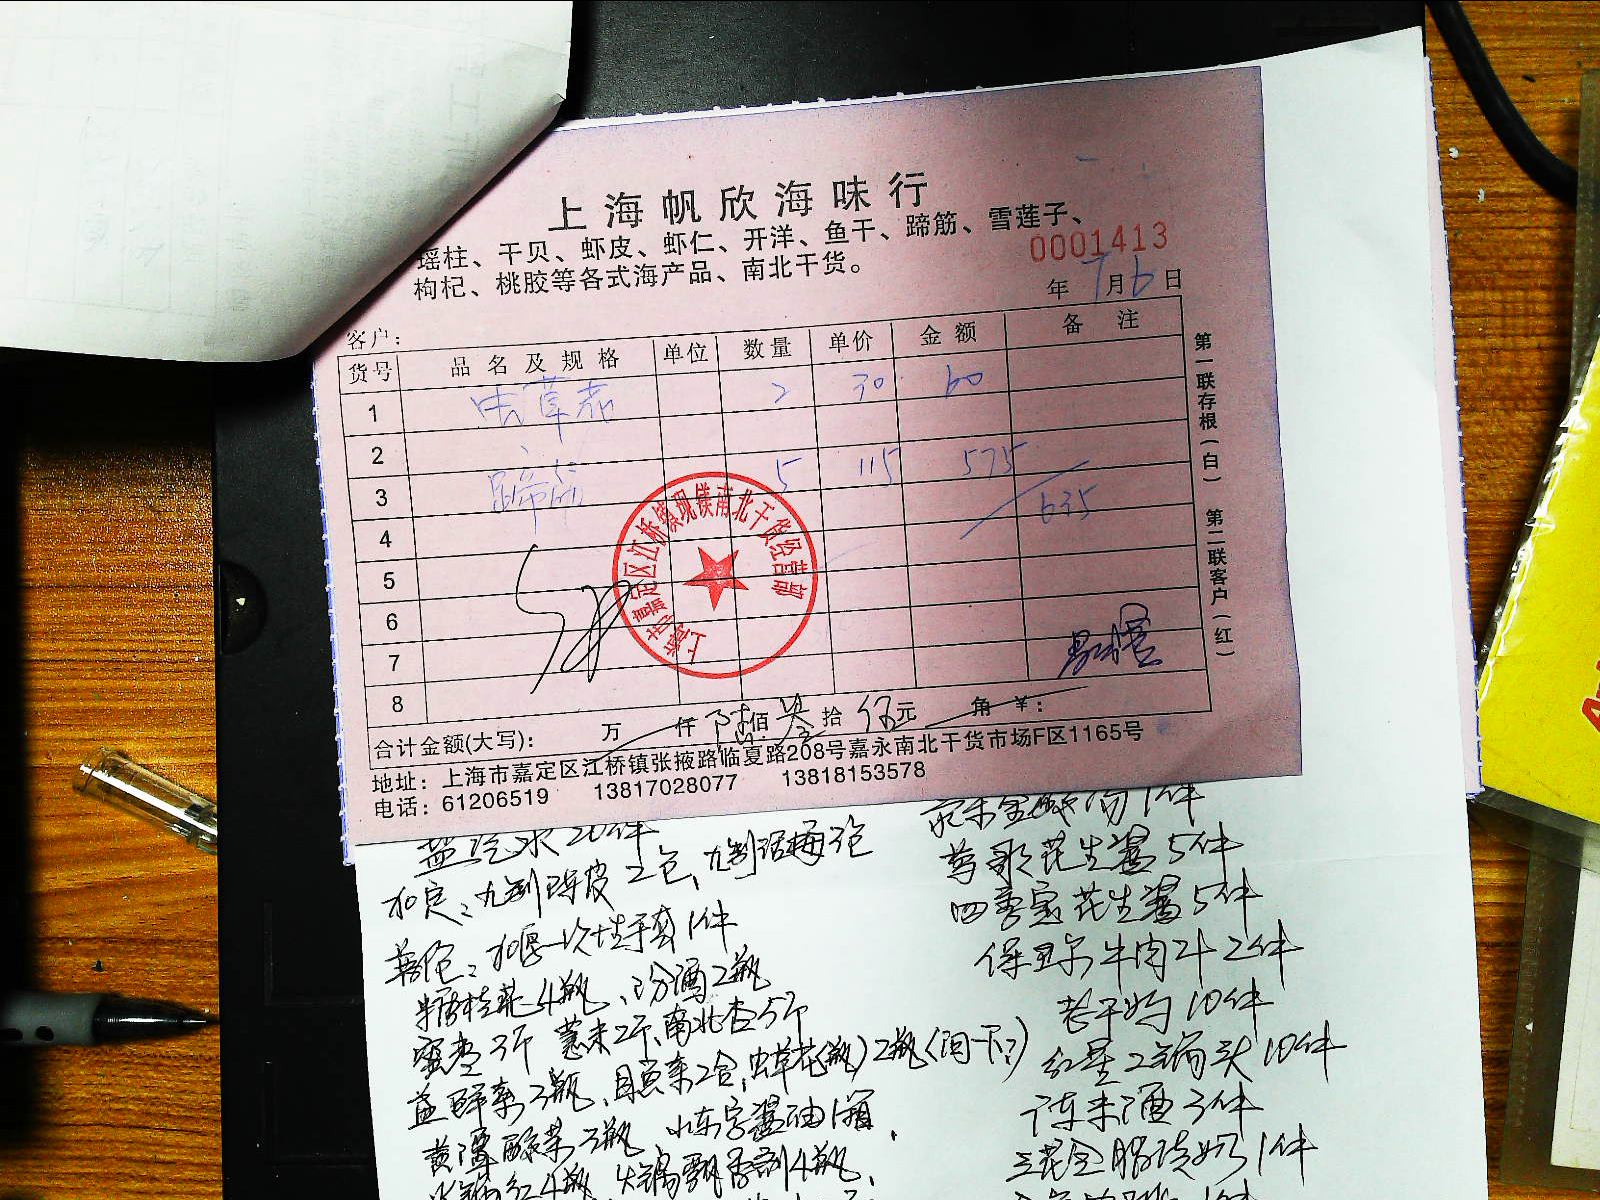 上海帆欣海味行
瑶柱、干贝、虾皮、虾仁、开洋、鱼干、蹄筋、雪莲子、
枸杞、桃胶等各式海产品、南北干货。
0001413
年 7月6日
客户：
货号 品名及规格 单位 数量 单价 金额 备注
1 虫草花 2 30 60
2
3 蹄筋 5 115 575
4 635
5
6
7
8
上海市嘉定区江桥镇现镁南北干货经营部
合计金额(大写)： 万 仟 陆佰 叁拾 伍元 角 ¥：
地址：上海市嘉定区江桥镇张掖路临夏路208号嘉永南北干货市场F区1165号
电话：61206519 13817028077 13818153578
第一联存根（白） 第二联客户（红）
盐汽水 20件
加定：九制陈皮 2包、九制话梅 3包
一次性手套 1件
糖桂花 4瓶、汾酒 2瓶
蜜枣 3斤 薏米 2斤、南北杏 5斤
虫草花(瓶) 2瓶
4瓶
1件
花生酱 5件
四季宝花生酱 5件
保卫尔牛肉汁 2件
老干妈 10件
红星二锅头 10件
广东米酒 3件
1件